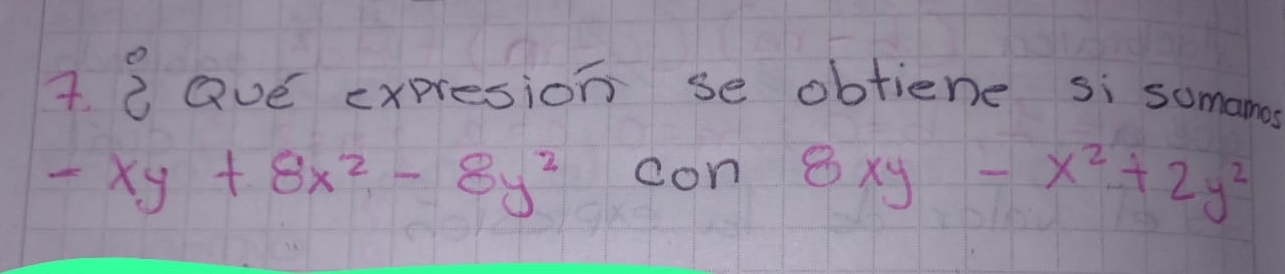 7. ¿Qué expresión se obtiene si sumamos
- xy + 8x² - 8y² con 8xy - x² + 2y²